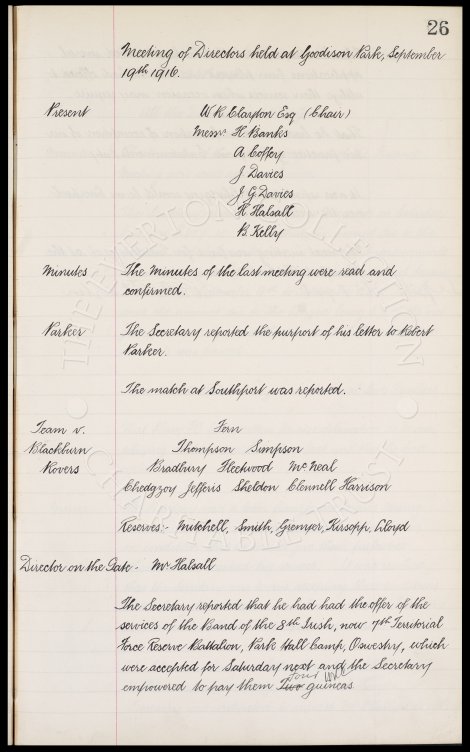 26
Meeting of Directors held at Goodison Park, September
19th 1916.
Present W R Clayton Esq (Chair)
Messrs H Banks
A Coffey
J Davies
J G Davies
H Halsall
B. Kelly
Minutes The Minutes of the last meeting were read and
confirmed.
Parker The Secretary reported the purport of his letter to Robert
Parker.
The match at Southport was reported.
Team v. Fern
Blackburn Thompson Simpson
Rovers Bradbury Fleetwood McNeal
Chedgzoy Jefferis Sheldon Clennell Harrison
Reserves:- Mitchell, Smith, Grenyer, Kirsopp, Lloyd
Director on the Gate - Mr Halsall
The Secretary reported that he had had the offer of the
services of the Band of the 8th Irish, now 7th Territorial
Force Reserve Battalion, Park Hall Camp, Oswestry, which
were accepted for Saturday next and the Secretary
four WRC
empowered to pay them Two guineas
THE EVERTON COLLECTION
CHARITABLE TRUST